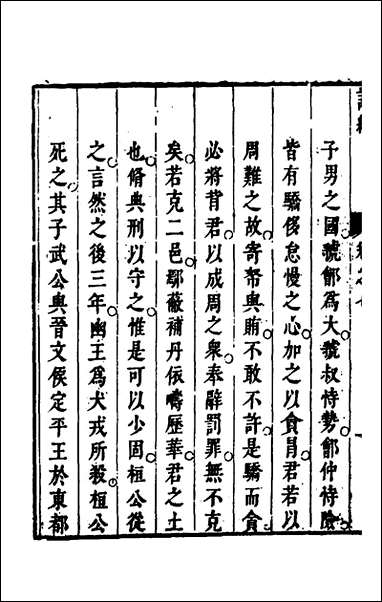 子男之國虢鄶爲大虢叔恃勢鄶仲恃險
皆有驕侈怠慢之心加之以貪冒君若以
周難之故寄帑與賄不敢不許是驕而貪
必將背君以成周之衆奉辭罰罪無不克
矣若克二邑鄢蔽補丹依疇歷華君之土
也脩典刑以守之惟是可以少固桓公從
之言然之後三年幽王爲犬戎所殺桓公
死之其子武公與晉文侯定平王於東都